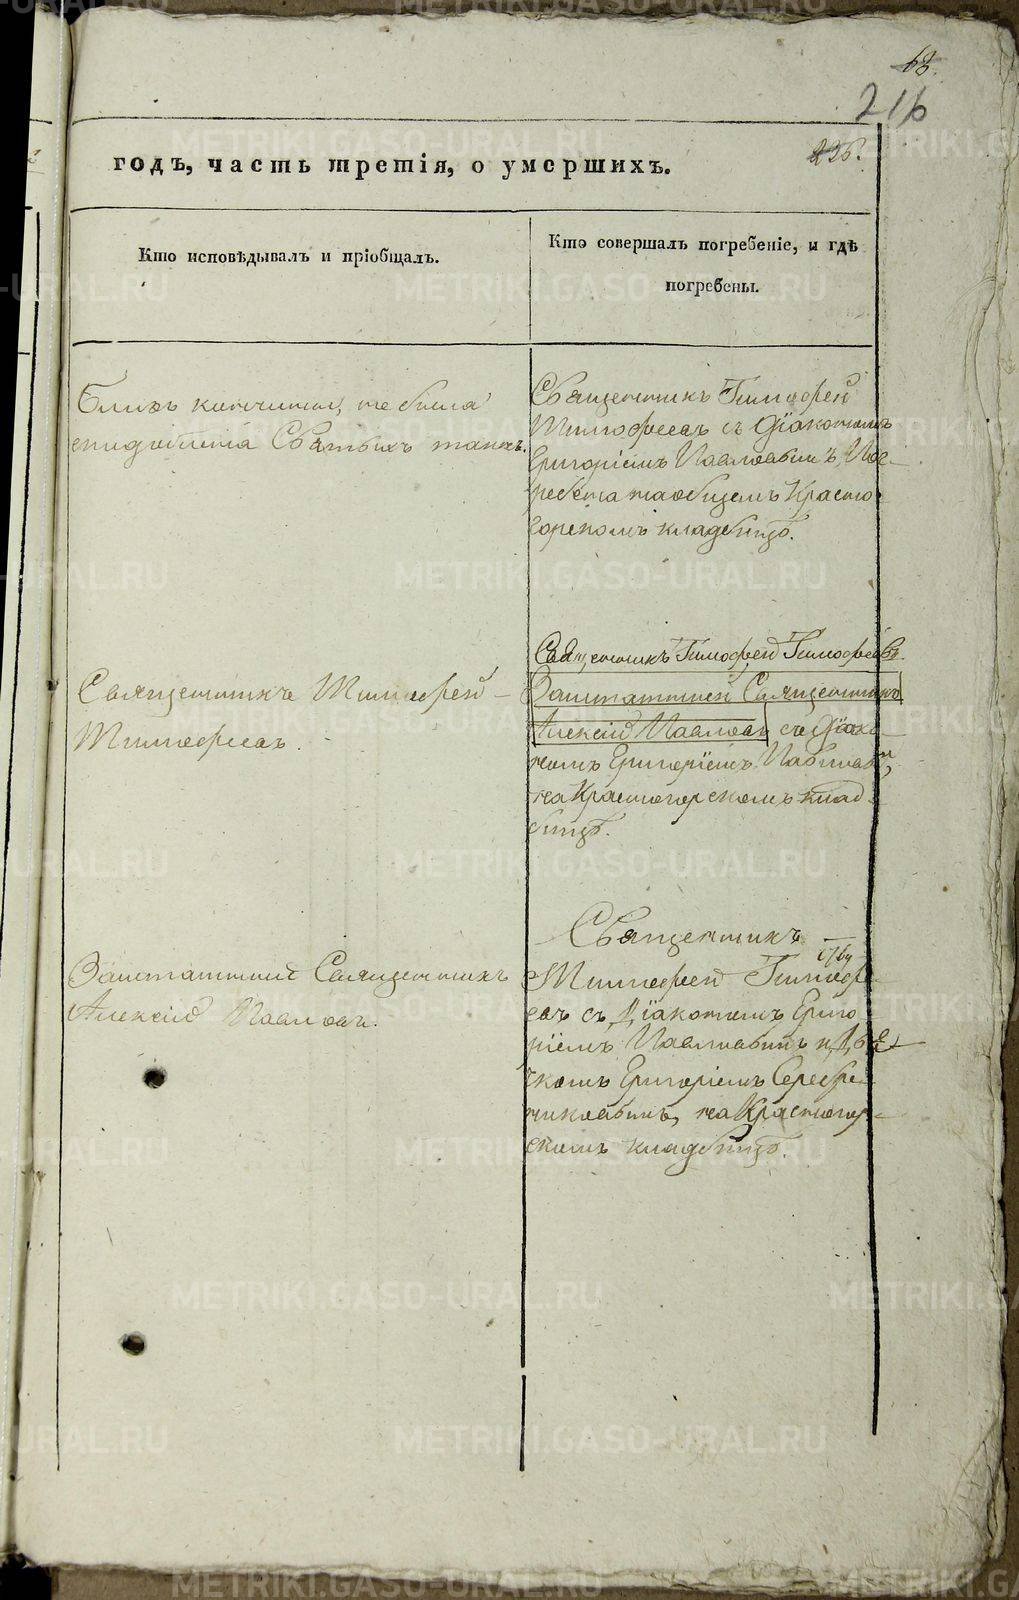 68.
216
226.
годъ, часть третія, о умершихъ.
Кто исповѣдывалъ и пріобщалъ.
Кто совершалъ погребеніе, и гдѣ
погребены.
не была
Святыхъ таинъ.
Священникъ Тимофей
Тимофеевъ съ Діакономъ
Григоріемъ Павловымъ, Пог-
ребена на общемъ Красно-
горскомъ кладбищѣ.
Священникъ Тимофей
Тимофеевъ.
Священникъ Тимофей Тимофеевъ.
Заштатный Священникъ
Алексій Павловъ съ Діако-
номъ Григоріемъ Павловым,
на Красногорскомъ клад-
бищѣ.
Заштатный Священникъ
Алексій Павловъ.
Священникъ
Тимофей Тимофе-
евъ съ Діакономъ Григо-
ріемъ Павловымъ и
Григоріемъ Серебре-
никовымъ, на Красногор-
скомъ кладбищѣ.
METRIKI.GASO-URAL.RU